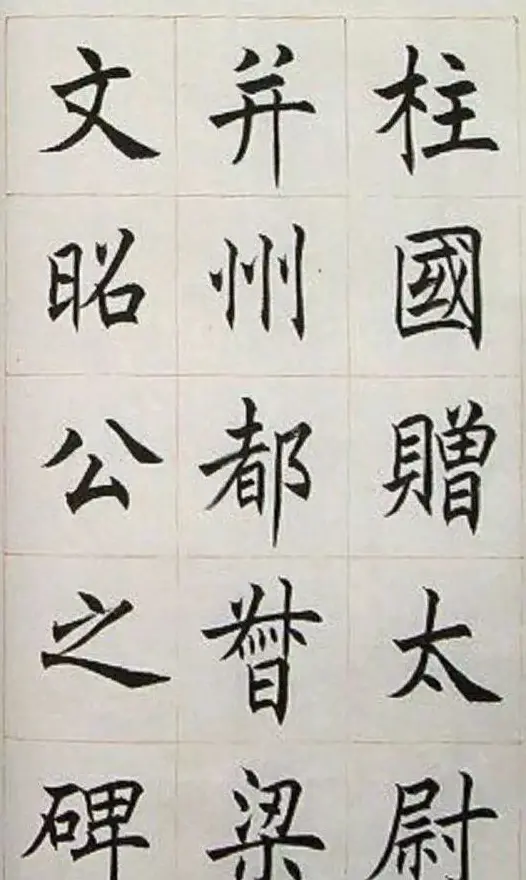 柱國贈太尉
并州都督梁
文昭公之碑